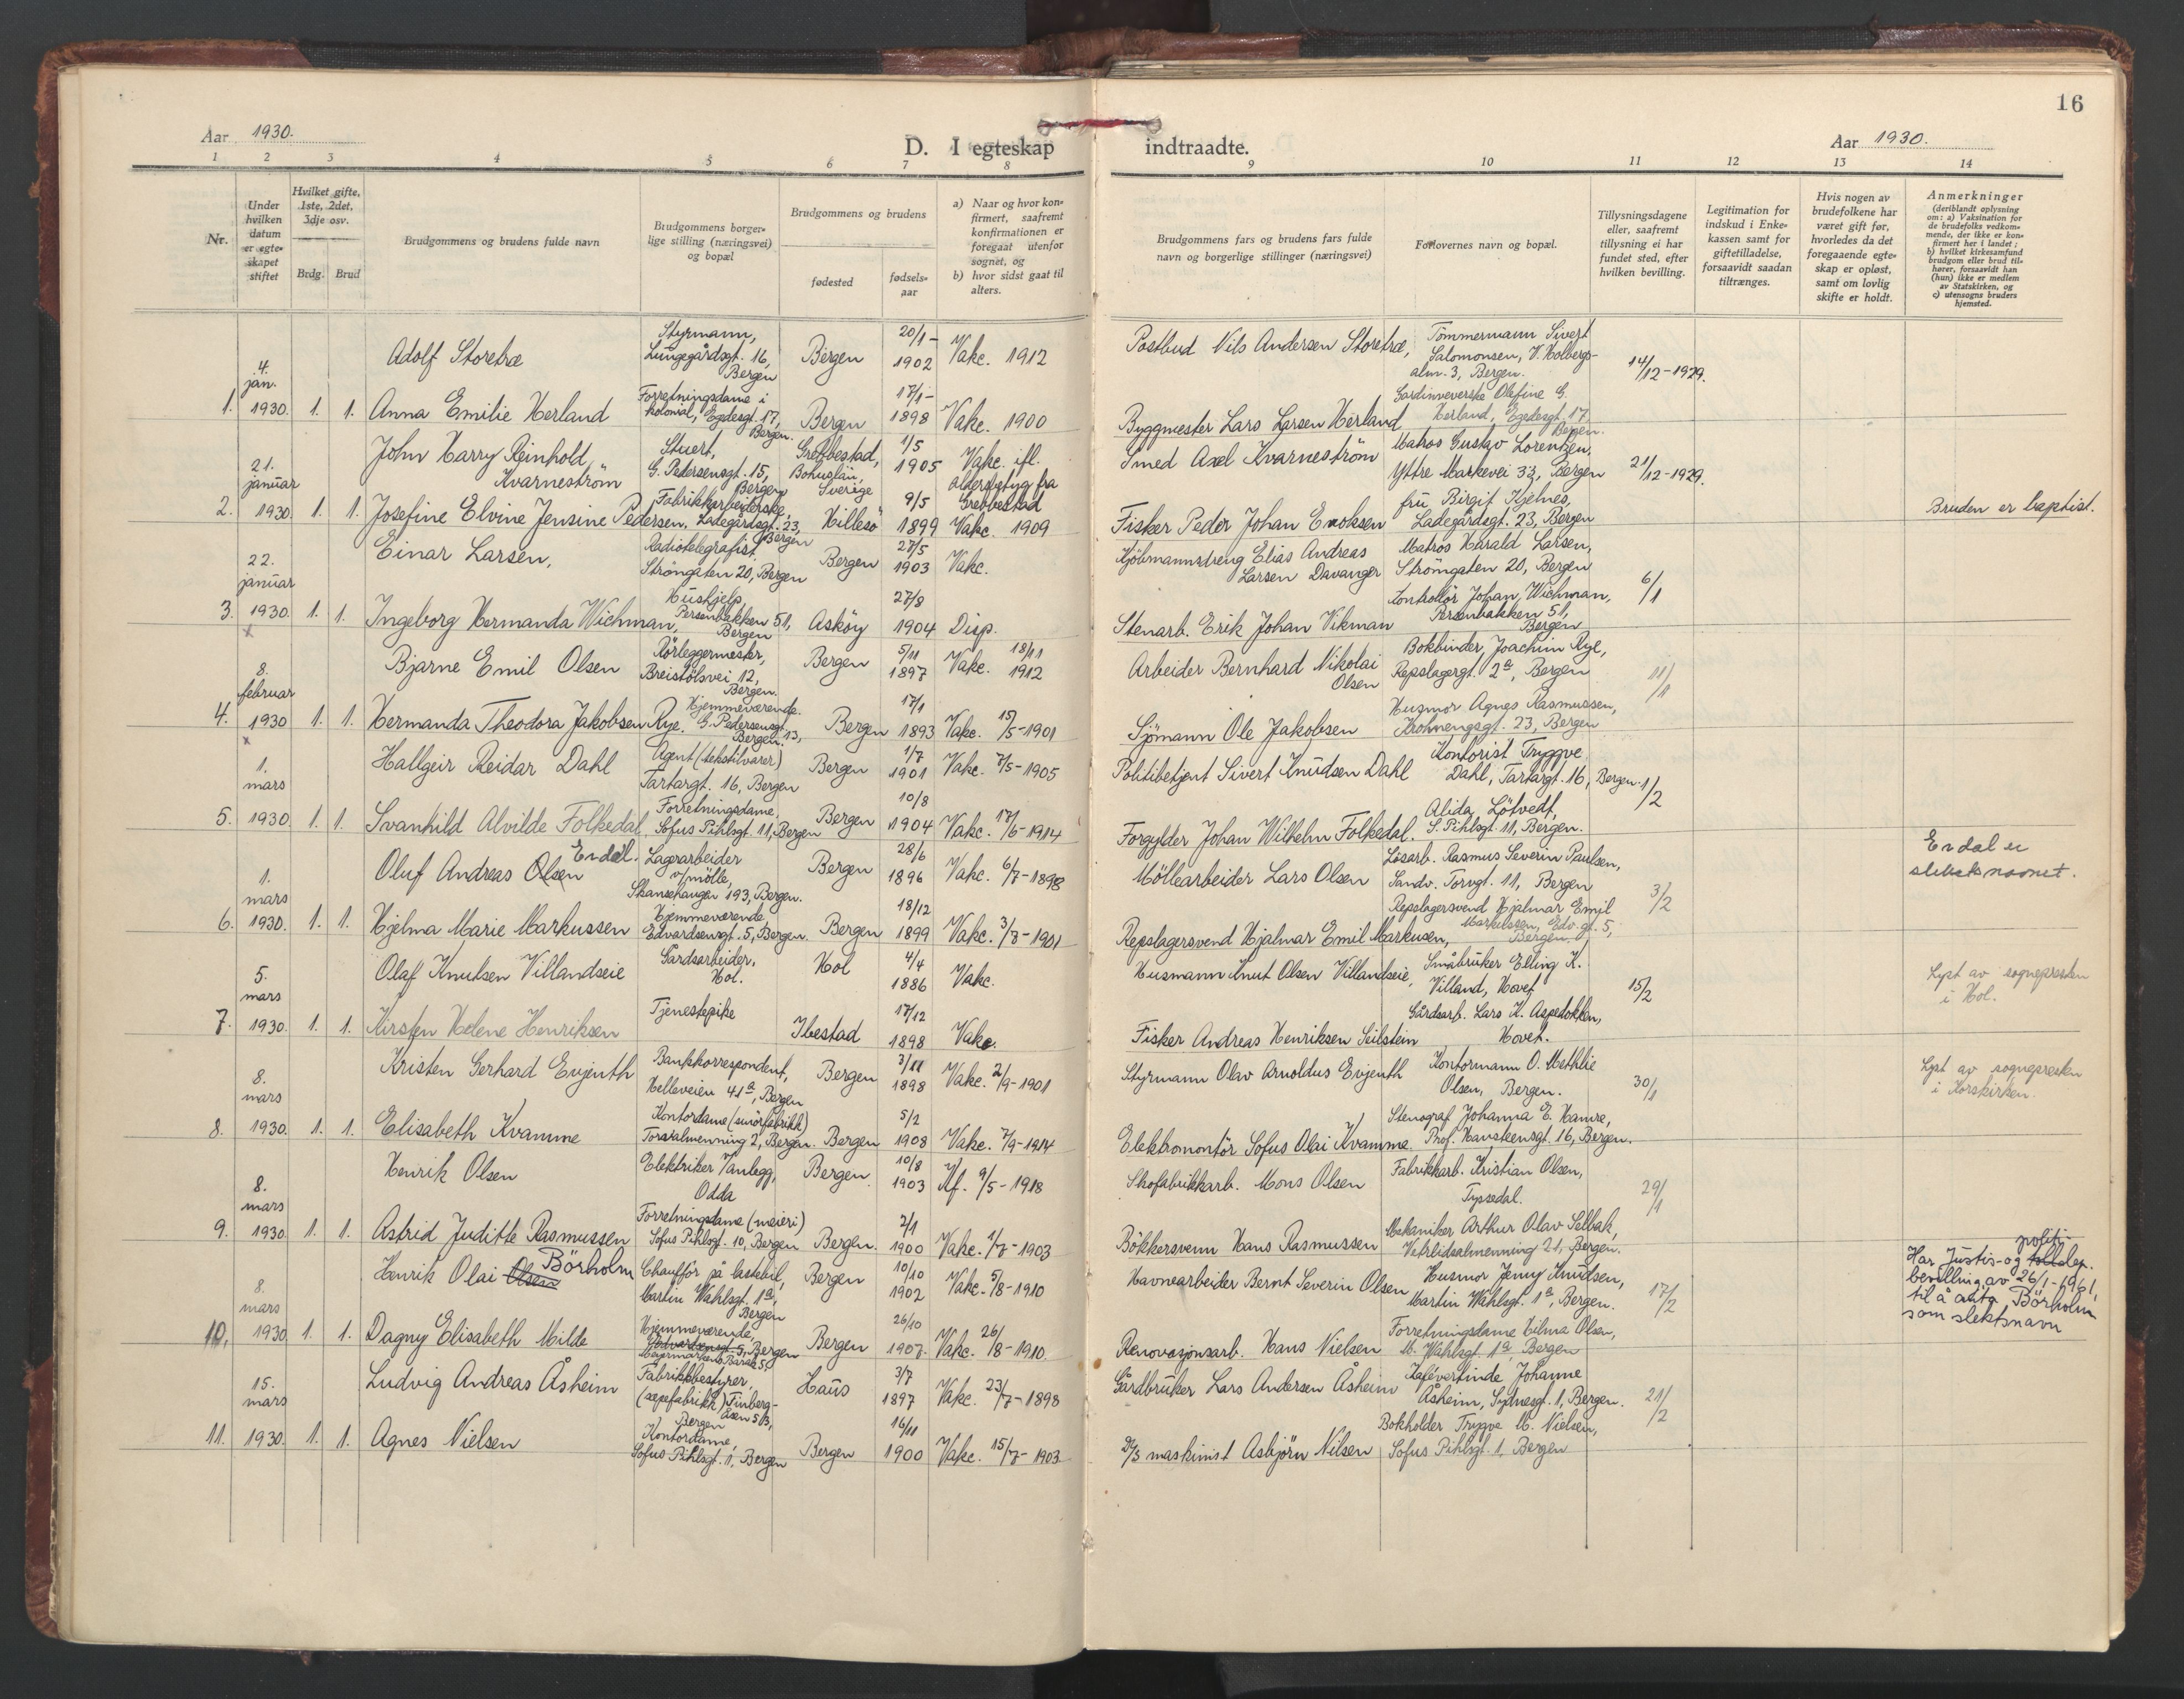 16
Aar 1930.
D. I egteskap
indtraadte.
Aar 1930.
1 2 3 4 5 6 7 8 9 10 11 12 13 14
Nr.
Under hvilken datum er egte-skapet stiftet
Hvilket gifte, 1ste, 2det, 3dje osv.
Brdg. Brud
Brudgommens og brudens fulde navn
Brudgommens borger-lige stilling (næringsvei) og bopæl
Brudgommens og brudens
fødested
fødsels-aar
a) Naar og hvor kon-firmert, saafremt konfirmationen er foregaat utenfor sognet, og
b) hvor sidst gaat til alters.
Brudgommens fars og brudens fars fulde navn og borgerlige stillinger (næringsvei)
Forlovernes navn og bopæl.
Tillysningsdagene eller, saafremt tillysning ei har fundet sted, efter hvilken bevilling.
Legitimation for indskud i Enke-kassen samt for giftetilladelse, forsaavidt saadan tiltrænges.
Hvis nogen av brudefolkene har været gift før, hvorledes da det foregaaende egte-skap er opløst, samt om lovlig skifte er holdt.
Anmerkninger
(deriblandt oplysning om: a) Vaksination for de brudefolks vedkom-mende, der ikke er kon-firmert her i landet; b) hvilket kirkesamfund brudgom eller brud til-hører, forsaavidt han (hun) ikke er medlem av Statskirken, og c) utensogns bruders hjemsted.
1. 4. jan. 1930. 1. 1.
Adolf Storetræ Styrmann, Lungegårdsgt. 16, Bergen Bergen 20/1- 1902 Vakc. 1912 Postbud Nils Andersen Storetræ, Tömmermann Sivert Salomonsen, V. Holbergs-alm. 3, Bergen. 14/12-1929.
Anna Emilie Herland Forretningsdame i kolonial, Egedesgt. 17, Bergen. Bergen 17/1- 1898 Vakc. 1900 Byggmester Lars Larsen Herland Gardinveverske Olefine G. Herland, Egedesgt. 17, Bergen.
2. 21. januar 1930. 1. 1.
John Harry Reinhold Kvarneström Stuert, G. Pedersensgt. 15, Bergen Grebbestad, Bohuslän, Sverige 1/5 1905 Vakc. ifl. aldersbetyg fra Grebbestad Smed Axel Kvarneström Matros Gustav Lorentzen, Yttre Markevei 33, Bergen 21/12-1929.
Josefine Elvine Jensine Pedersen, Fabrikkarbeiderske, Ladegårdsgt. 23, Bergen Hillesö 9/5 1899 Vakc. 1909 Fisker Peder Johan Enoksen fru Birgit Hjelnes, Ladegårdsgt. 23, Bergen Bruden er baptist.
3. 22. januar 1930. 1. 1.
Einar Larsen, Radiotelegrafist, Strömgaten 20, Bergen Bergen 27/5 1903 Vakc. Kjöbmannsdreng Elias Andreas Larsen Davanger Matros Harald Larsen, Strömgaten 20, Bergen 6/1
Ingeborg Hermanda Wichman, Hushjelp, Persenbakken 51, Bergen Asköy 27/8 1904 Disp. Stenarb. Erik Johan Vikman Kontrollör Johan Wichman, Persenbakken 51, Bergen
4. 8. februar 1930 1. 1.
Bjarne Emil Olsen Rörleggermester, Breistölsvei 12, Bergen. Bergen 5/11 1897 Vakc. 18/11 1912 Arbeider Bernhard Nikolai Olsen Bokbinder, Joachim Rye, Repslagergt. 2a, Bergen 11/1
Hermanda Theodora Jakobsen Rye. Hjemmeværende. G. Pedersensgt. 13, Bergen. Bergen 17/1 1893 Vakc. 15/5-1901 Sjömann Ole Jakobsen Husmor Agnes Rasmussen, Krohnengsgt. 23, Bergen
5. 1. mars 1930. 1. 1.
Hallgeir Reidar Dahl Agent (tekstilvarer) Tartargt. 16, Bergen Bergen 1/7 1901 Vakc. 7/5-1905 Politibetjent Sivert Knudsen Dahl Kontorist Tryggve Dahl, Tartargt. 16, Bergen. 1/2
Svanhild Alvilde Folkedal Forretningsdame, Sofus Pihlsgt. 11, Bergen Bergen 10/8 1904 Vakc. 17/6-1914 Forgylder Johan Wilhelm Folkedal. Alida Lötvedt, S. Pihlsgt. 11, Bergen.
6. 1. mars 1930. 1. 1.
Oluf Andreas Olsen Erdal. Lagerarbeider v/mölle, Skansehaugen 193, Bergen. Bergen 28/6 1896 Vakc. 6/7-1898 Möllearbeider Lars Olsen Lösarb. Rasmus Severin Paulsen, Sandv. Torvgt. 11, Bergen 3/2 Erdal er slektsnavnet.
Hjelma Marie Markussen Hjemmeværende Edvardsensgt. 5, Bergen. Bergen 18/12 1899 Vakc. 3/8-1901 Repslagersvend Hjalmar Emil Markusen, Repslagersvend Hjalmar Emil Markussen, Edv.gt. 5, Bergen
7. 5. mars 1930. 1. 1.
Olaf Knutsen Villandseie Gardsarbeider, Hol. Hol 4/4 1886 Vakc. Husmann Knut Olsen Villandseie, Småbruker Elling K. Villand, Hovet 15/2 Lyst av sognepresten i Hol.
Kirsten Helene Henriksen Tjenestepike Ibestad 17/12 1898 Vakc. Fisker Andreas Henriksen Seilstein Gårdsarb. Lars K. Aspedokken, Hovet.
8. 8. mars 1930. 1. 1.
Kristen Gerhard Evjenth Bankkorrespondent, Helleveien 41a, Bergen Bergen 3/11 1898 Vakc. 2/9-1901 Styrmann Olav Arnoldus Evjenth Kontormann O. Methlie Olsen, Bergen. 30/1 Lyst av sognepresten i Korskirken.
Elisabeth Kvamme Kontordame (smörfabrikk) Torvalmenning 2, Bergen. Bergen 5/2 1908 Vakc. 7/9-1914 Elektromontör Sofus Olai Kvamme. Stenograf Johanna E. Hamre, Prof. Hansteensgt. 16, Bergen.
9. 8. mars 1930. 1. 1.
Henrik Olsen Elektriker v/anlegg, Odda Bergen 10/8 1903 Kf. 9/5-1918 Skofabrikkarb. Mons Olsen Fabrikkarb. Kristian Olsen, Tyssedal. 29/1
Astrid Juditte Rasmussen Forretningsdame (meieri) Sofus Pihlsgt. 10, Bergen Bergen. 2/1 1900 Vakc. 1/7-1903 Bökkersvenn Hans Rasmussen Mekaniker Arthur Olav Selbak, Vetrlidsalmenning 21, Bergen.
10. 8. mars 1930 1. 1.
Henrik Olai Olsen Börholm Chaufför på lastebil, Martin Wahlsgt. 1a, Bergen Bergen 10/10 1902 Vakc. 5/8-1910 Havnearbeider Bernt Severin Olsen Husmor Jenny Knudsen, Martin Wahlsgt. 1a, Bergen. 17/2 Har Justis- og politi-dep. bevilling av 26/1-1961, til å anta Börholm som slektsnavn
Dagny Elisabeth Milde Hjemmeværende, Edvardsensgt. 5, Bergen Bergen 26/10 1907. Vakc. 26/8-1910. Renovasjonsarb. Hans Nielsen Forretningsdame Hilma Olsen, M. Wahlsgt. 1a, Bergen
11. 15. mars 1930. 1. 1.
Ludvig Andreas Åsheim Fabrikkbestyrer (sepefabrikk) Finberg-åsen 5B, Bergen Haus 3/7 1897 Vakc. 23/7-1898 Gårdbruker Lars Andersen Åsheim Kafévertinde Johanne Åsheim, Sydnesgt. 1, Bergen. 21/2
Agnes Nielsen Kontordame, Sofus Pihlsgt. 1, Bergen Bergen 16/11 1900 Vakc. 15/7-1903 D/S maskinist Asbjörn Nilsen Bokholder Trygve M. Nielsen, Sofus Pihlsgt. 1, Bergen